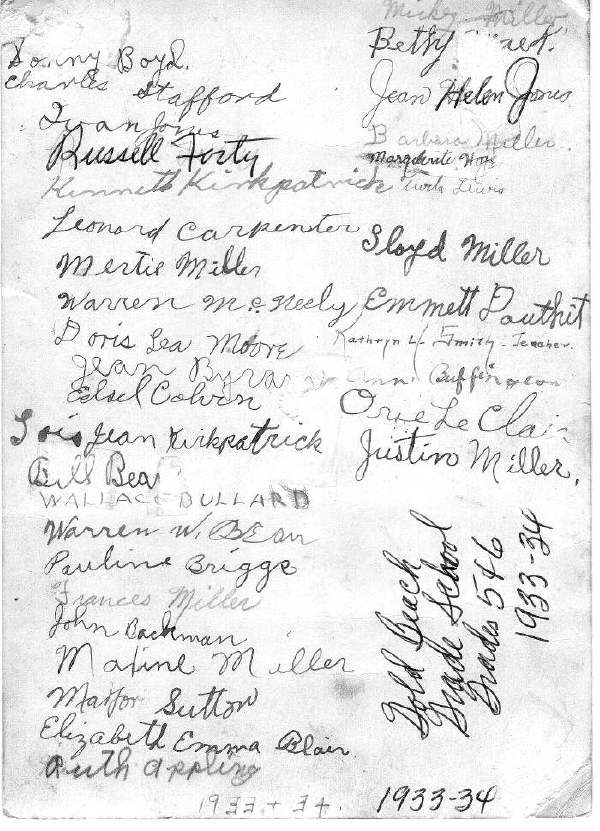 Donny Boyd.
Charles Stafford
Iwan Jones
Russell Forty
Kenneth Kirkpatrick
Leonard Carpenter
Mertie Miller
Warren McNeely
Doris Lea Moore
Jean
Edsel Colvin
Lois Jean Kirkpatrick
Bill Bea
WALLACE BULLARD
Warren W. Bean
Pauline Briggs
Frances Miller
John Backman
Maxine Miller
Sutton
Elizabeth Emma Blair
Ruth Appling
1933 + 34.
Micky Miller
Betty
Jean Helen Jones
Barbara Miller.
Marguerite
Lewis
Lloyd Miller
Emmett Douthit
Kathryn L. Smith - Teacher.
Ann Buffington
Orie Le Clair
Justin Miller.
Gold Beach
Grade School
Grades 5+6
1933-34
1933-34